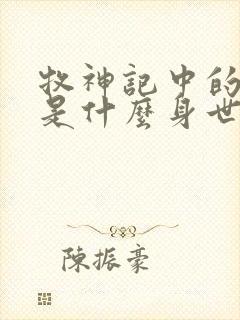 牧神記中的
是什麼身世
陳振豪